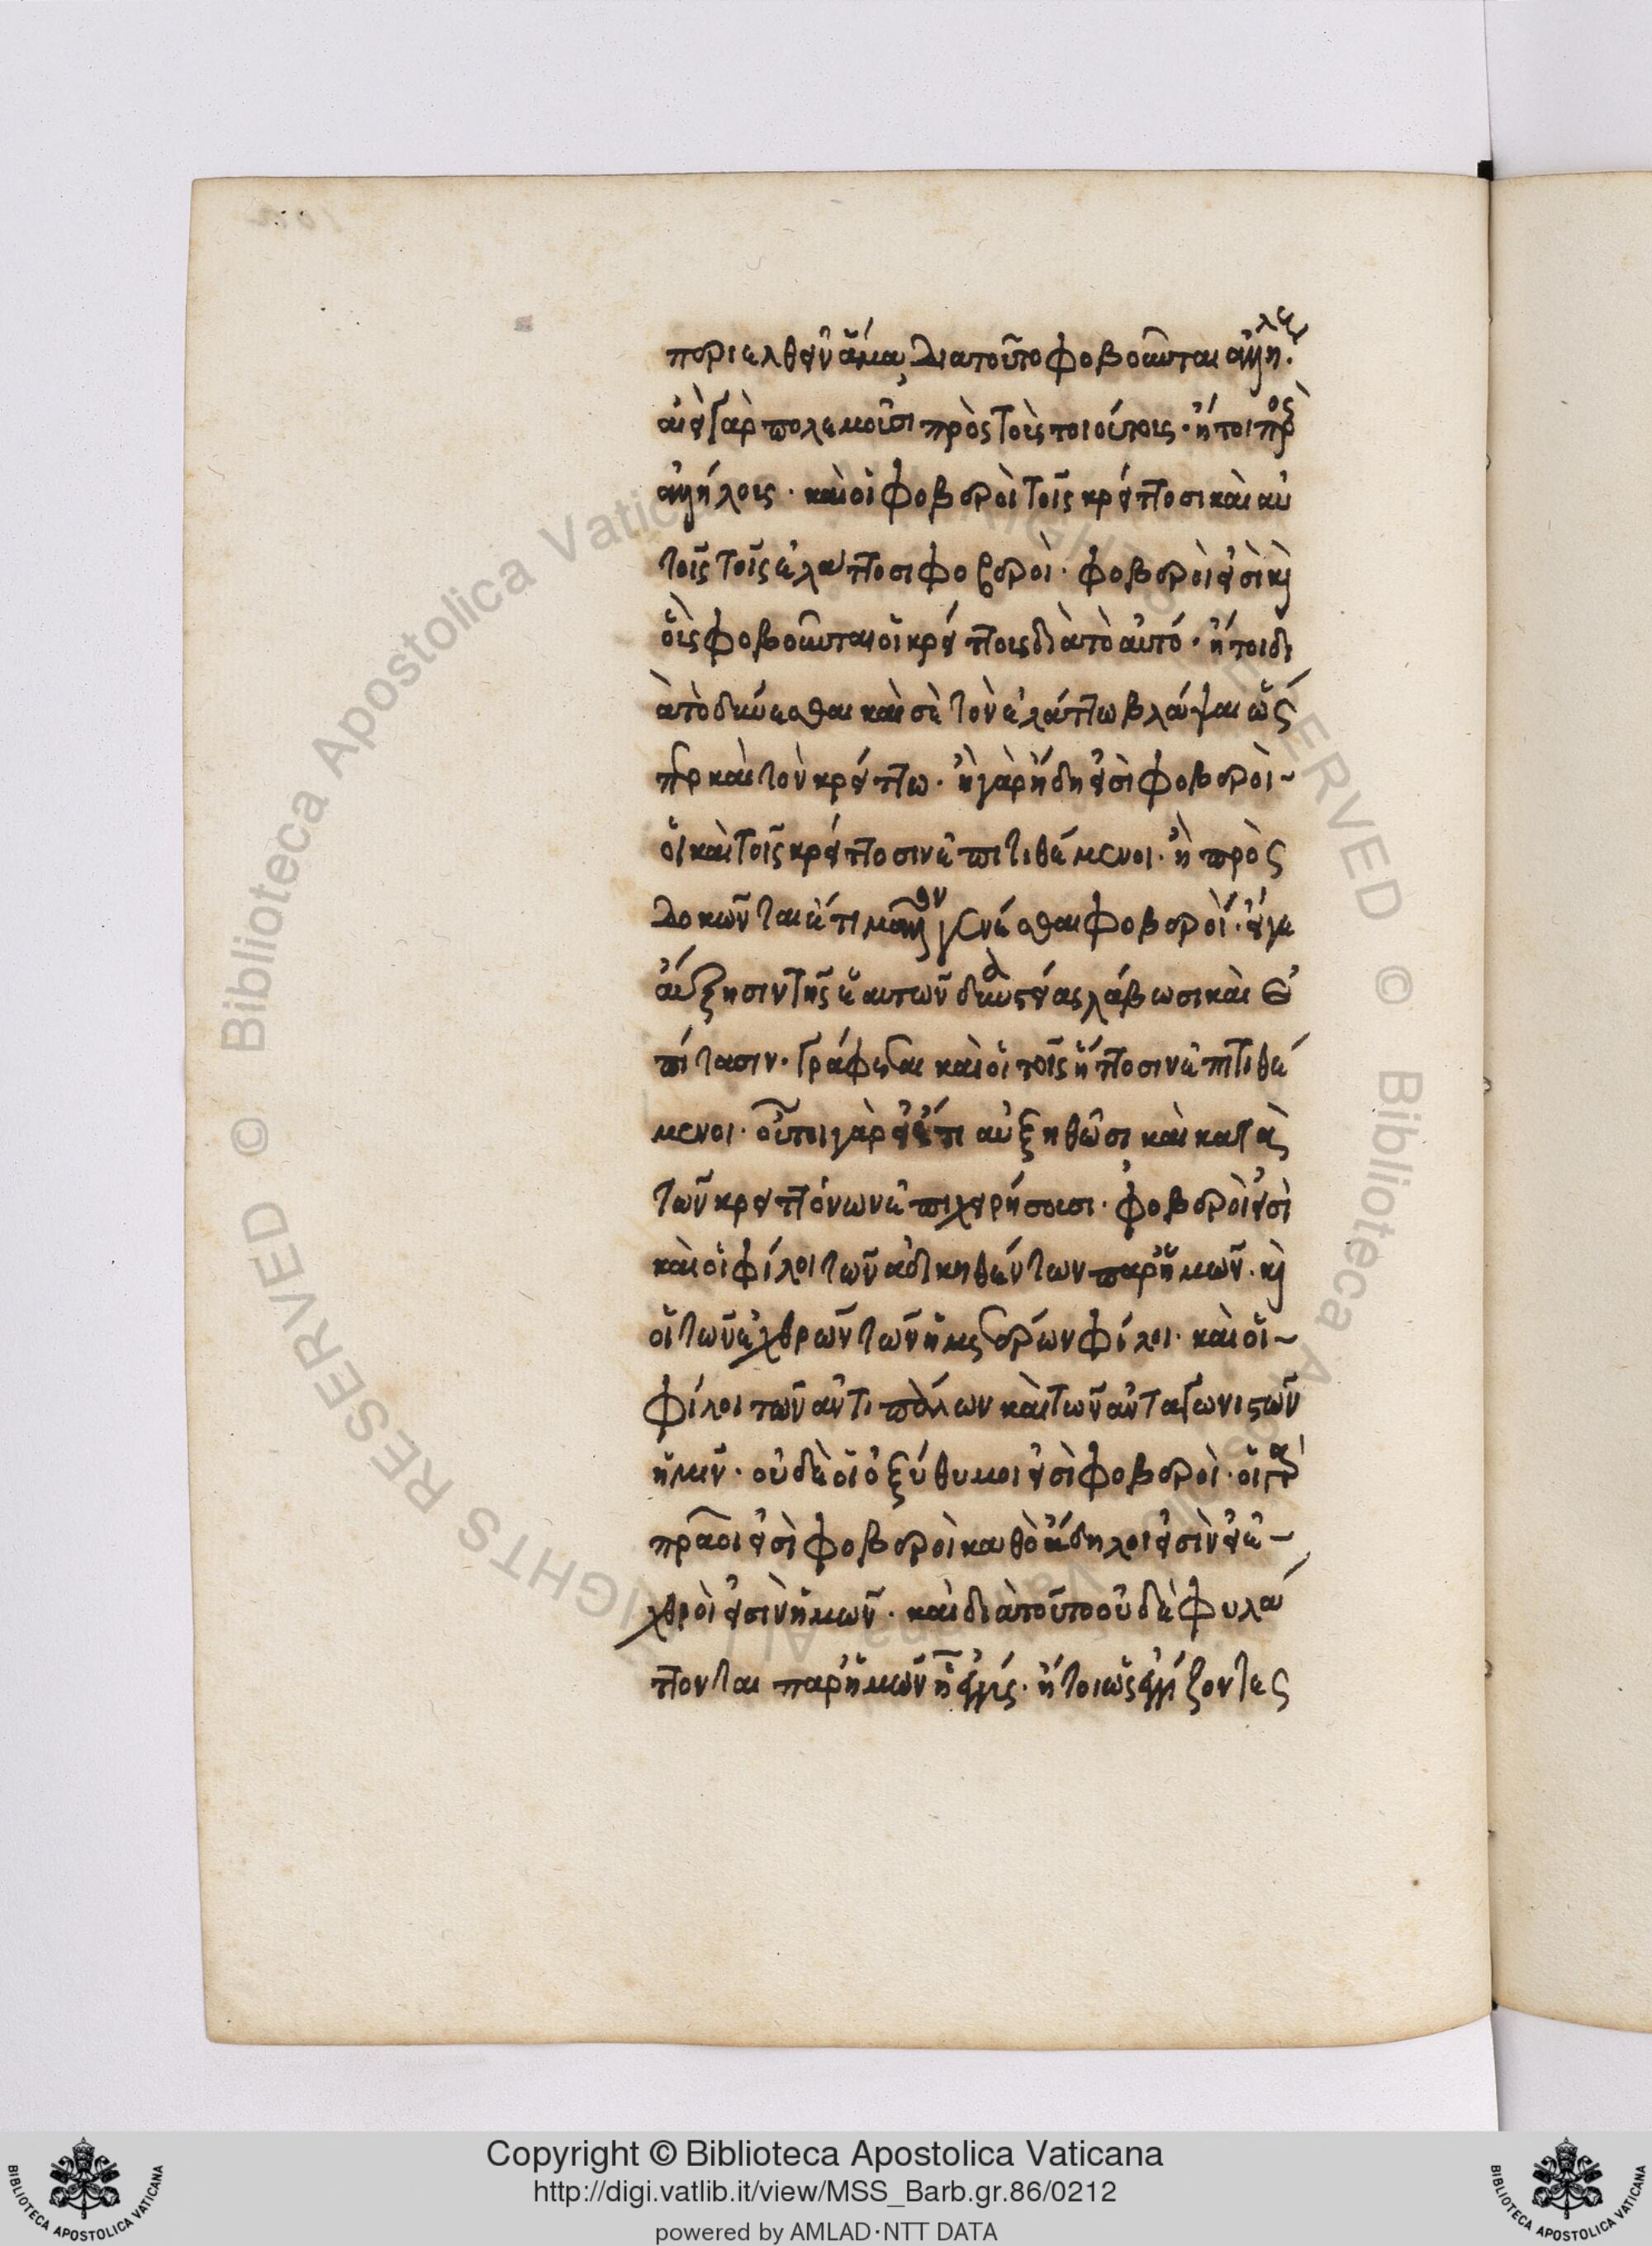 περιελθεῖν ἅμα, διατοῦτο φοβοῦνται ἀλλήλους.
ἀεὶ γὰρ πολεμοῦσι πρὸς τοὺς τοιούτους· ἤτοι πρὸς
ἀλλήλους· καὶ οἱ φοβεροὶ τοῖς κρείττοσι καὶ αὐ
τοῖς τοῖς ἐλάττοσι φοβεροί· φοβεροὶ εἰσὶ καὶ
οὓς φοβοῦνται οἱ κρείττους διὰ τὸ αὐτό· ἤτοι δι
ὰ τὸ δύνασθαι καὶ σὲ τὸν ἐλάττω βλάψαι ὥς
περ καὶ τὸν κρείττω· ἢ γὰρ ἤδη εἰσὶ φοβεροὶ
οἱ καὶ τοῖς κρείττοσιν ἐπιτιθέμενοι· ἢ προσ
δοκῶνται ἔτι μᾶλλον γενέσθαι φοβεροί· εἴγε
αὔξησιν τῆς ἑαυτῶν δυναστείας λάβωσι καὶ ἐ
πίτασιν· γράφεται καὶ οἱ τοῖς ἥττοσιν ἐπιτιθέ
μενοι· οὗτοι γὰρ εἰ ἔτι αὐξηθῶσι καὶ κατὰ
τῶν κρειττόνων ἐπιχειρήσουσι· φοβεροὶ εἰσὶ
καὶ οἱ φίλοι τῶν ἀδικηθέντων παρ' ἡμῶν· καὶ
οἱ τῶν ἐχθρῶν τῶν ἡμετέρων φίλοι· καὶ οἱ
φίλοι τῶν ἀντιπάλων καὶ τῶν ἀνταγωνιστῶν
ἡμῖν· οὐδὲ οἱ ὀξύθυμοι εἰσὶ φοβεροὶ· οἱ γὰρ
πρᾶοι εἰσὶ φοβεροὶ καθὸ ἄδηλοι εἰσὶν εἰ ἐ
χθροὶ εἰσὶν ἡμῶν· καὶ διὰ τοῦτο οὐδὲ φυλά
ττονται παρ' ἡμῶν ἤτοι ὡς ζοντες